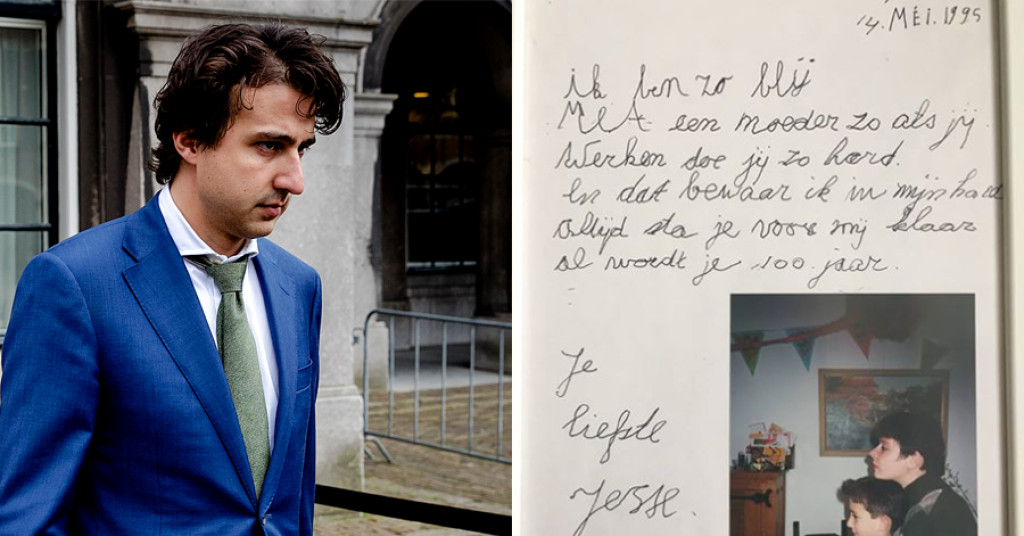 14. MEI. 1995
ik ben zo blij
MET een moeder zo als jij.
Werken doe jij zo hard.
En dat bewaar ik in mijn hard
altijd sta je voor mij klaar
al wordt je 100 jaar.
Je
liefste
Jesse.